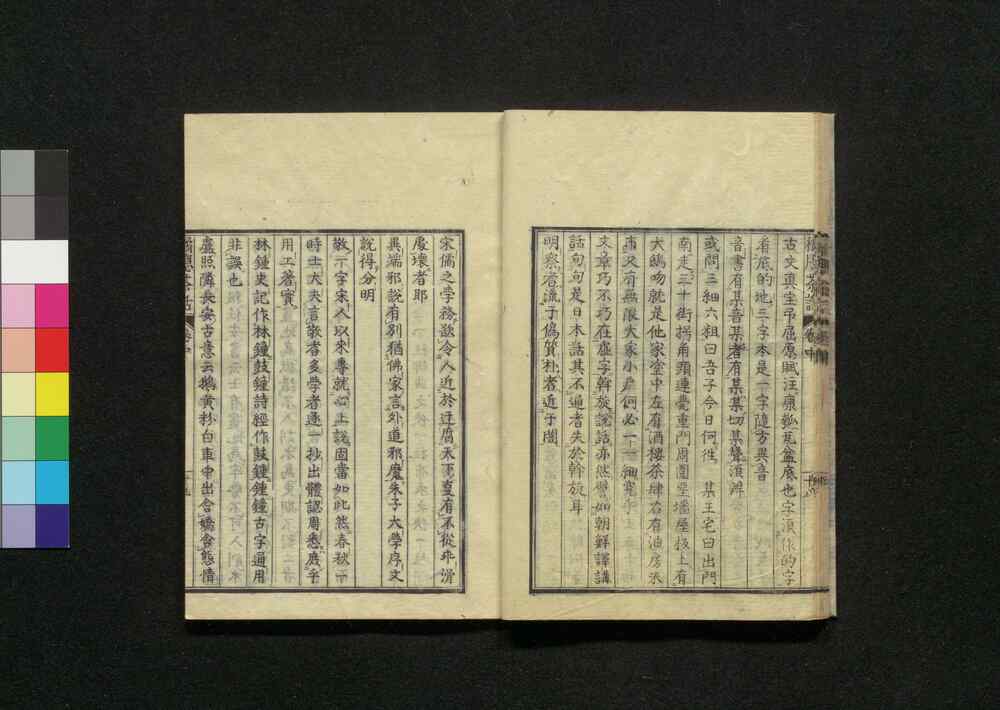 橘窓茶話 卷中
古文真宝弔屈原賦注康瓠瓦盆底也字須作的字
看底的地三字本是一字隨方異音
音書有某音某者有某某切某聲須辨
或問三細六粗曰吾子今日何徃 某王宅曰出門
南走三十街拐角頭連甍重門周圍堊墻屋梁上有
大鴟吻就是他家堂中左有酒樓茶肆右有油房米
市又有無限大家小戶何必一一細覓
文章巧不巧在虛字斡旋說話亦然譬如朝鮮譯講
話句句是日本話其不通者失於斡旋耳
明察者流于僞質朴者近于闇
宋儒之學務欲令人近於迂腐天下更有不從乖滑
處壞者耶
異端邪說有別猶佛家言外道邪魔朱子大學序文
說得分明
敬一字宋人以來專就心上說固當如此然春秋
時士大夫言敬者多學者逐一抄出體認周悉庶乎
用工著實
林鍾史記作林鐘鼓鍾詩經作鼓鐘鍾鐘古字通用
非誤也
盧照隣長安古意云鵝黄粉白車中出含嬌含態情
橘窓茶話 卷中